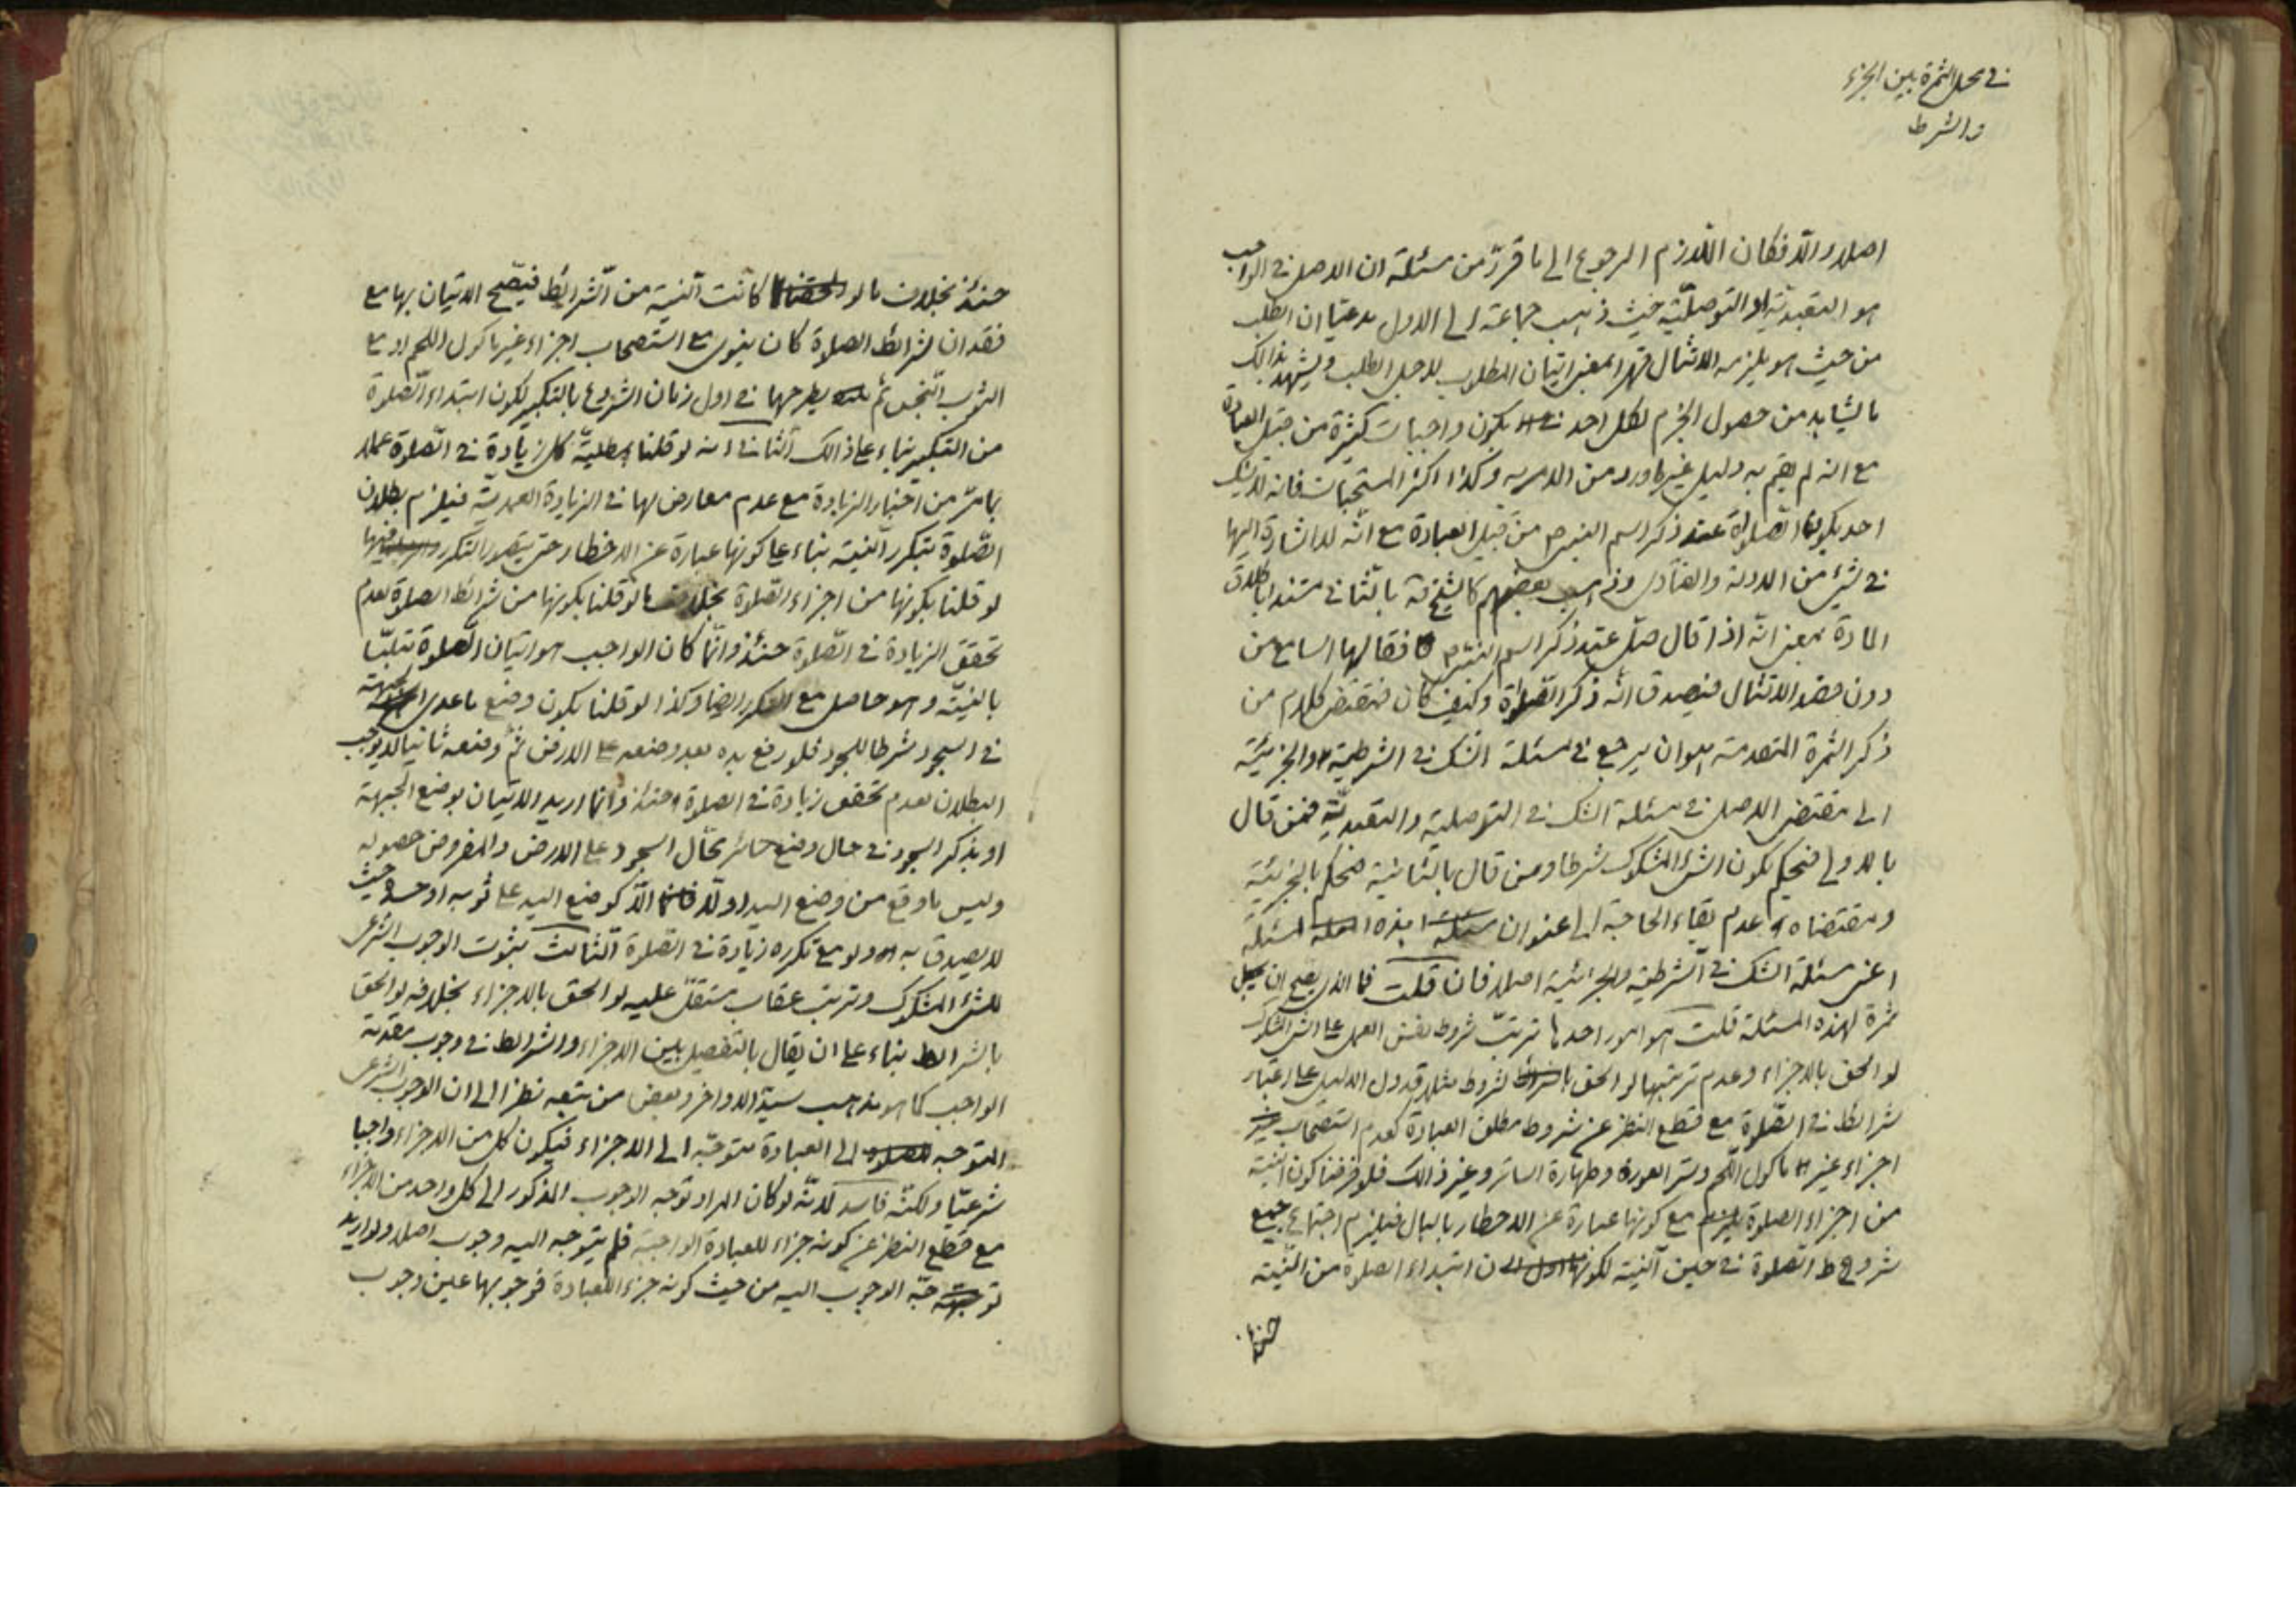 في محل الثمرة بين الجزء
والشرط
اصلا والا فكان اللازم الرجوع الى ما قرر من مسئلة ان الاصل في الواجب
هو التعبدية او التوصلية حيث ذهب جماعة الى الاول مدعيا ان الطلب
من حيث هو يلزمه الامتثال قهرا بمعنى اتيان المطلوب لاجل الطلب ويشهد بذالك
ما يشاهد من حصول الجزم لكل احد بكون واجبات كثيرة من قبيل العبادة
مع انه لم يقم به دليل غير ما ورد من الامر به وكذا اكثر المستحبات فانه لا يشك
احد بكون الصلوة عند ذكر اسم النبي ص من قبيل العبادة مع انه لا اشارة اليها
في شيء من الادلة والفتاوى وذهب بعضهم كالشيخ الى الثاني مستندا باطلاق
المادة بمعنى انه اذا قال صل عند ذكر اسم النبي ص فقالها السامع من
دون قصد الامتثال فيصدق انه ذكر الصلوة وكيف كان فمقتضى كلام من
ذكر الثمرة المتقدمة هو ان يرجع في مسئلة الشك في الشرطية والجزئية
الى مقتضى الاصل في مسئلة الشك في التوصلية والتعبدية فمن قال
بالاولى فيحكم بكون الشيء المشكوك شرطا ومن قال بالثانية فيحكم بالجزئية
ومقتضاه عدم بقاء الحاجة الى عنوان هذه المسئلة
اعني مسئلة الشك في الشرطية والجزئية اصلا فان قلت فما الذي يصح ان يجعل
ثمرة لهذه المسئلة قلت هو امور احدها ترتب شروط نفس العمل على الشيء المشكوك
لو الحق بالاجزاء وعدم ترتبها لو الحق بالشروط مثلا قد دل الدليل على اعتبار
شرائط في الصلوة مع قطع النظر عن شروط مطلق العبادة كعدم استصحاب
اجزاء غير ماكول اللحم وستر العورة وطهارة الساتر وغير ذالك فلو فرضنا كون النية
من اجزاء الصلوة مع كونها عبارة عن الاخطار بالبال فيلزم اجتماع جميع
شروط الصلوة في حين النية لكون ابتداء الصلوة من النية
حينئذ
حينئذ بخلاف ما لو كانت النية من الشرائط فيصح الاتيان بها مع
فقدان شرائط الصلوة كان ينوي مع استصحاب اجزاء غير ماكول اللحم او مع
الثوب النجس ثم يطرحها في اول زمان الشروع بالتكبير لكون ابتداء الصلوة
من التكبير بناء على ذالك الثاني انه لو قلنا بمبطلية كل زيادة في الصلوة عملا
بما مر من اخبار الزيادة مع عدم معارض لها في الزيادة العمدية فيلزم بطلان
الصلوة بتكرر النية بناء على كونها عبارة عن الاخطار حتى يتصور التكرر فيها
لو قلنا بكونها من اجزاء الصلوة بخلاف ما لو قلنا بكونها من شرائط الصلوة لعدم
تحقق الزيادة في الصلوة حينئذ وانما كان الواجب هو اتيان الصلوة متلبسا
بالنية وهو حاصل مع التكرر ايضا وكذا لو قلنا بكون وضع ما عدى الجبهة
في السجود شرطا للسجود فلو رفع يده بعد وضعه على الارض ثم وضعه ثانيا لا يوجب
البطلان لعدم تحقق زيادة في الصلوة حينئذ وانما اريد الاتيان بوضع الجبهة
او بذكر السجود في حال وضع سائر محال السجود على الارض والمفروض حصوله
وليس ما وقع من وضع اليد اولا الا كوضع اليد على ثوبه او جسده حيث
لا يصدق به ولو مع تكرره زيادة في الصلوة الثالث ثبوت الوجوب الشرعي
للشيء المشكوك وترتب عقاب مستقل عليه لو الحق بالاجزاء بخلافه لو الحق
بالشرائط بناء على ان يقال بالتفصيل بين الاجزاء والشرائط في وجوب مقدمة
الواجب كما هو مذهب سيد الاواخر وبعض من تبعه نظرا الى ان الوجوب الشرعي
المتوجه الى العبادة متوجه الى الاجزاء فيكون كل من الاجزاء واجبا
شرعيا ولكنه فاسد لانه لو كان المراد توجه الوجوب المذكور الى كل واحد من الاجزاء
مع قطع النظر عن كونه جزءا للعبادة الواجبة فلم يتوجه اليه وجوب اصلا ولو اريد
توجه الوجوب اليه من حيث كونه جزءا للعبادة فوجوبها عين وجوب